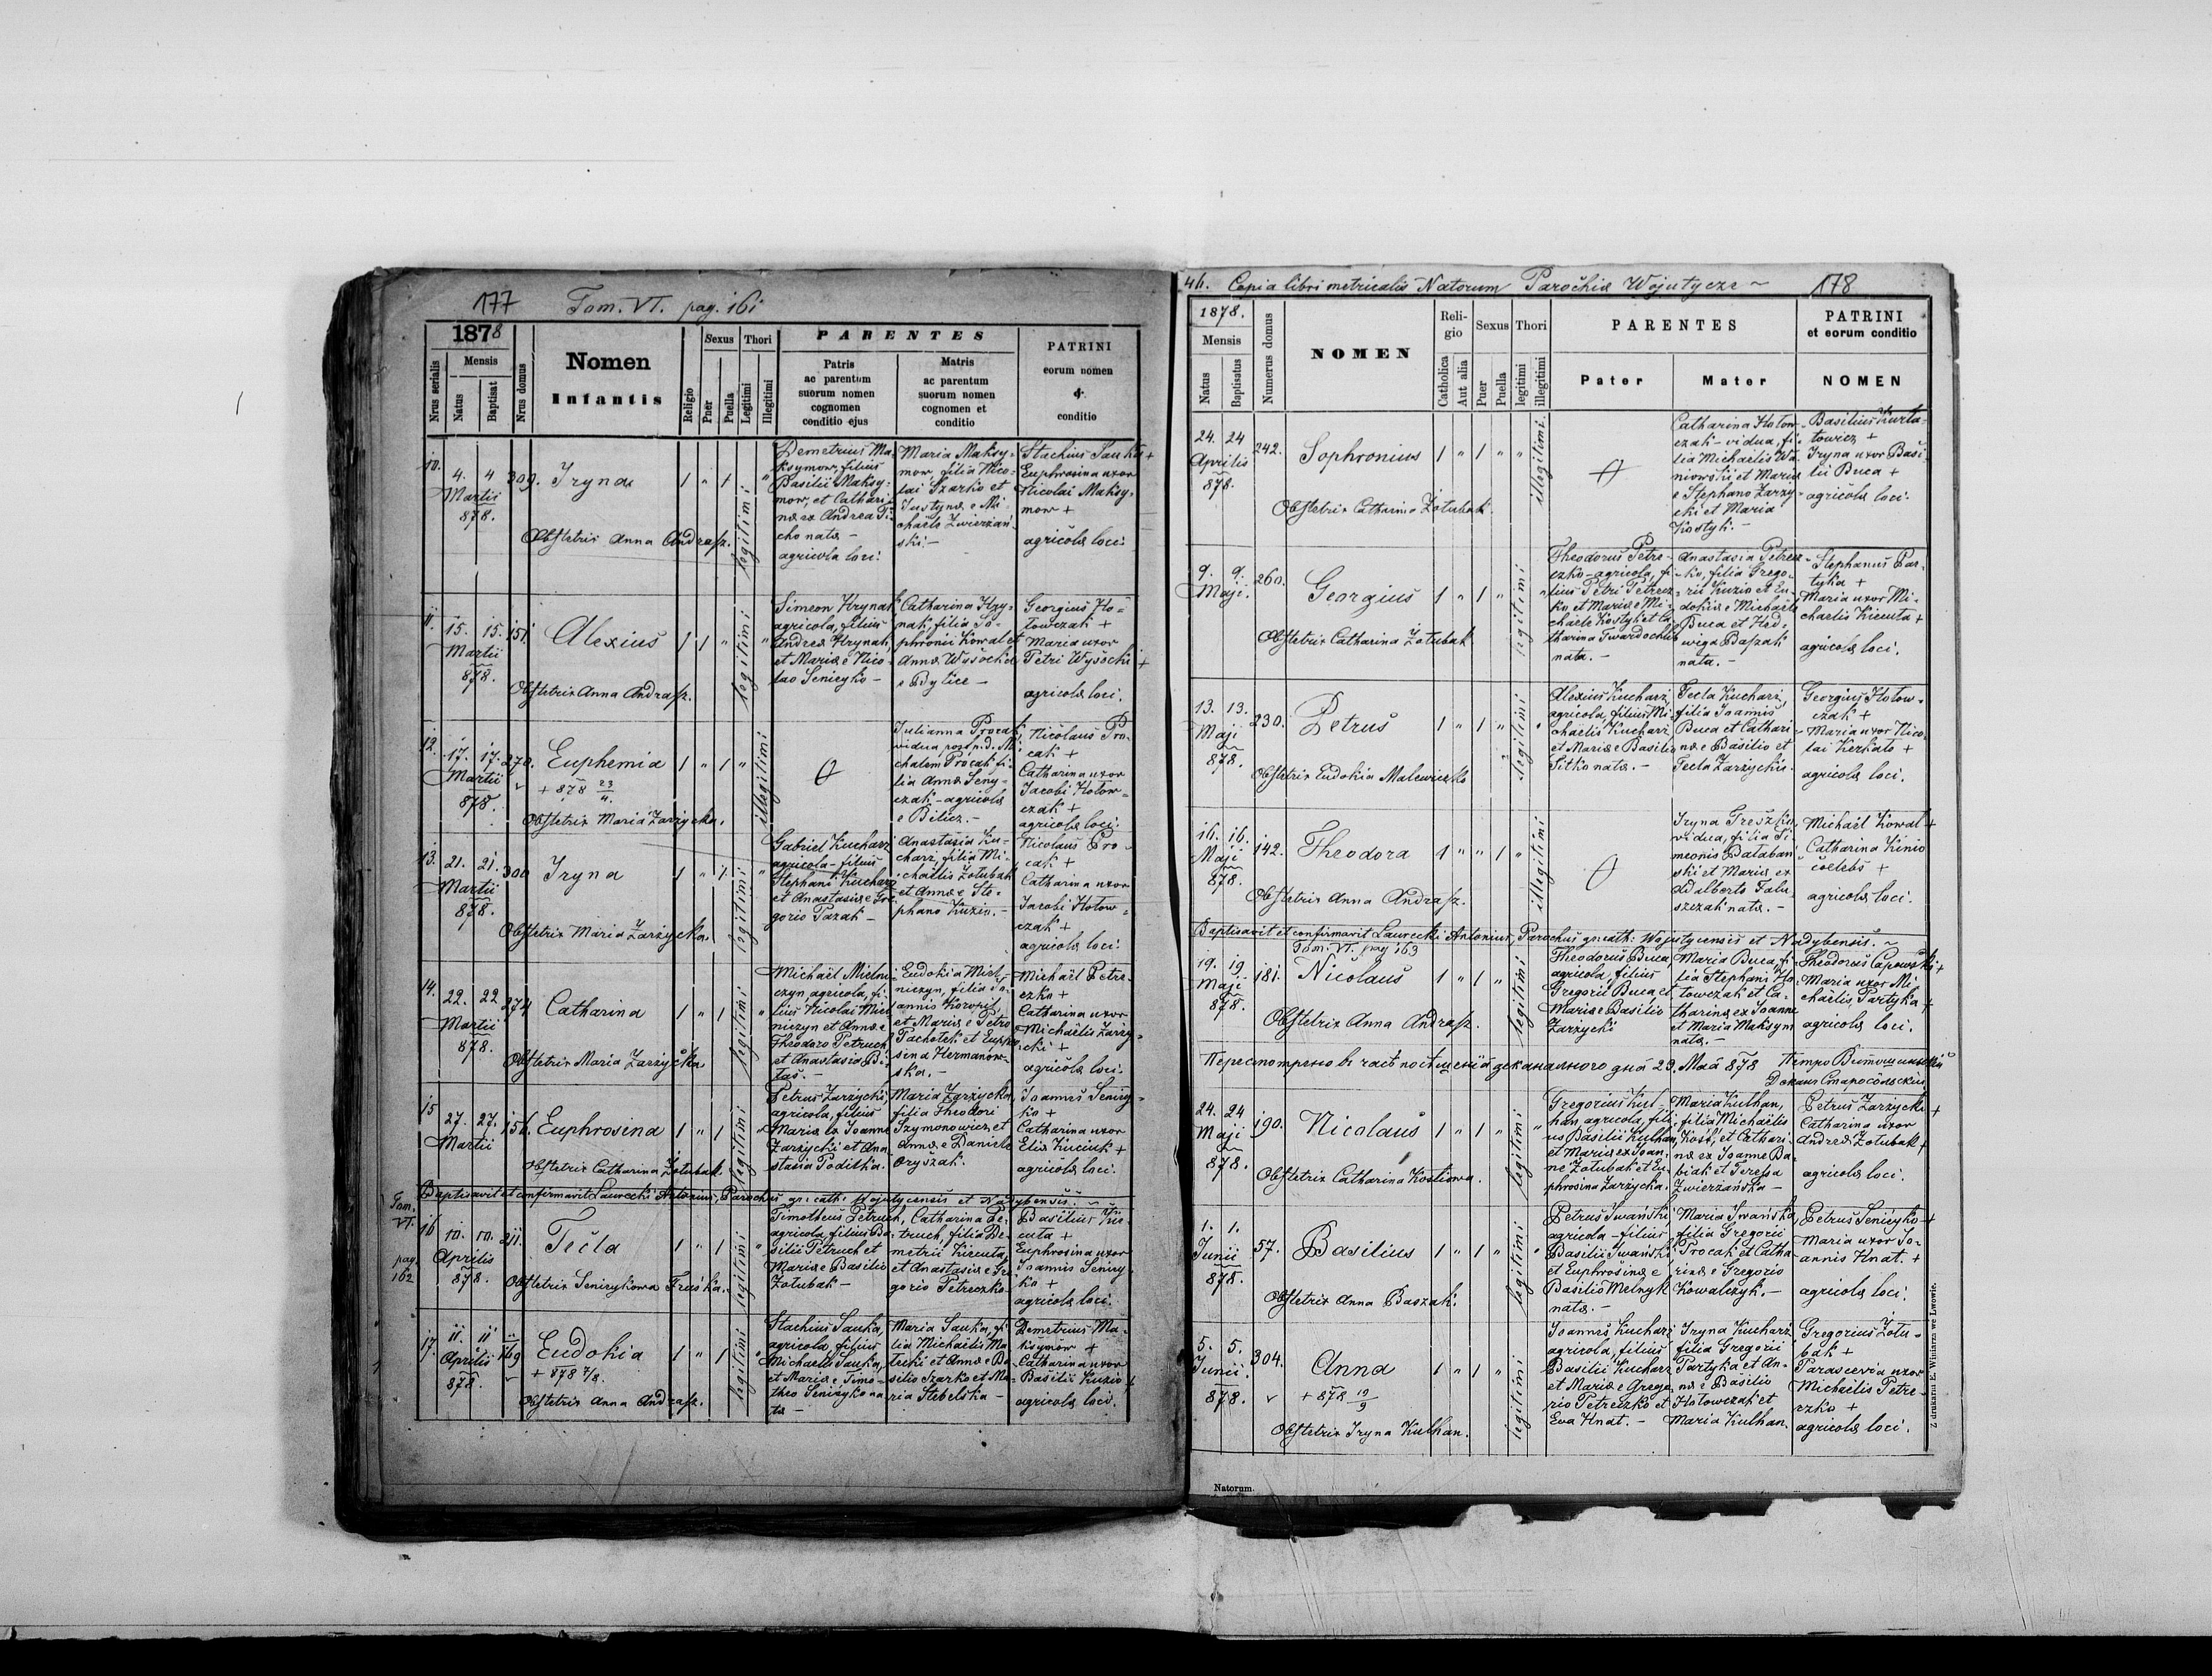 177 Tom. VI. pag. 161
1878
Nrus serialis
Mensis
Natus
Baptisat
Nrus domus
Nomen
Infantis
Religio
Sexus
Puer
Puella
Thori
Legitimi
Illegitimi
PARENTES
Patris
ac parentum
suorum nomen
cognomen
conditio ejus
Matris
ac parentum
suorum nomen
cognomen et
conditio
PATRINI
eorum nomen
&
conditio
10.
4. 4
Martii
878.
309.
Iryna
1 " 1 "
legitimi
Obstetrix Anna Andrasz.
Demetrius Ma-
ksymow, filius
Basilii Maksy-
mow, et Cathari-
næ ex Andrea Ti-
cho nata -
agricola loci.
Maria Maksy-
mow, filia Nico-
lai Szarko et
Justynæ e Mi-
chaele Zwierzań-
ski -
Stachius Sauka +
Euphrosina uxor
Nicolai Maksy-
mow +
agricolæ loci.
11.
15. 15.
Martii
878.
151.
Alexius
1 1 " "
legitimi
Obstetrix Anna Andrasz.
Simeon Hrynak
agricola, filius
Andreæ Hrynak,
et Mariæ e Nico-
lao Senicyko -
Catharina Hry-
nak, filia So-
phronii Kowal et
Annæ Wysockie
e Bylice -
Georgius Ho-
towczak +
Maria uxor
Petri Wysocki +
agricolæ loci.
12.
17. 17.
Martii
878.
270.
Euphemia
+ 878 23/4.
1 " 1 "
illegitimi
Obstetrix Maria Zarzycka.
Julianna Procak,
vidua post n.d. Mi-
chalem Procak fi-
lia Annæ Seny-
czak - agricola
e Bilicz. -
Nicolaus Pro-
cak +
Catharina uxor
Jacobi Hotow-
czak +
agricolæ loci.
13.
21. 21.
Martii
878.
300
Iryna
1 " 1 "
legitimi
Obstetrix Maria Zarzycka.
Gabriel Kucharz
agricola - filius
Stephani Kucharz
et Anastasiæ e Gre-
gorio Pazak -
Anastasia Ku-
charz, filia Mi-
chaelis Zotubak
et Annæ e Ste-
phano Kuzin. -
Nicolaus Pro-
cak +
Catharina uxor
Jacobi Hotow-
czak +
agricolæ loci.
14.
22. 22
Martii
878.
274
Catharina
1 " 1 "
legitimi
Obstetrix Maria Zarzycka
Michaël
agricola, fi-
lius Nicolai
et Annæ e
Theodoro Petruch
et Anastasia Bi-
tas. -
Eudokia
filia Jo-
annis
et Mariæ e Petro
Pachotek et Euphro-
sina Hermanow-
ska. -
Michaël Petre-
czko +
Catharina uxor
Michaelis Zarzy-
cki +
agricolæ loci.
15
27. 27.
Martii
156.
Euphrosina
1 " 1 "
legitimi
Obstetrix Catharina Zotubak.
Petrus Zarzycki,
agricola, filius
Mariæ ex Joanne
Zarzycki et Ana-
stasia Poditka.
Maria Zarzycka,
filia Theodori
Szymonowicz et
Annæ e Daniele
Oryszak.
Joannes Seniry-
ko +
Catharina uxor
Eliæ Kuciuk +
agricolæ loci.
Baptisavit et confirmavit Laurecki Antonius, Parochus gr: cath: Wojutycensis et Nadybensis. ~
Tom.
VI.
pag.
162
16
10. 10.
Aprilis
878.
211.
Tecla
1 " 1 "
legitimi
Obstetrix Senirykowa Fruska.
Timotheus Petruch,
agricola, filius Ba-
silii Petruch et
Mariæ e Basilio
Zotubak -
Catharina Pe-
truch, filia De-
metrii Kicenta,
et Anastasiæ e Gre-
gorio Petreczko.
Basilius Ki-
cuta +
Euphrosina uxor
Joannis Seniry-
ko +
agricolæ loci.
17.
11. 11
Aprilis
878.
169
Eudokia
+ 878 7/8.
1 " 1 "
legitimi
Obstetrix Anna Andrasz.
Stachius Sauka,
agricola, filius
Michaelis Sauka,
et Mariæ e Timo-
theo Seniryko na-
ta -
Maria Sauka, fi-
lia Michaelis Ma-
et Annæ e Ba-
silio Szarko et Ma-
ria Stebelska -
Demetrius Ma-
ksymow +
Catharina uxor
Basilii Kuzio +
agricolæ loci.
46. Copia libri metricalis Natorum Parochiæ Wojutycze ~ 178
1878.
Mensis
Natus
Baptisatus
Numerus domus
NOMEN
Reli-
gio
Catholica
Aut alia
Sexus
Puer
Puella
Thori
legitimi
illegitimi
PARENTES
Pater
Mater
PATRINI
et eorum conditio
NOMEN
24. 24
Aprilis
878.
242.
Sophronius
1 " 1 " "
illegitimi.
Obstetrix Catharina Zotubak.
Catharina Hotow-
czak - vidua, fi-
lia Michaelis Wa-
niowski et Mariæ
e Stephano Zarzy-
cki et Maria
Kostyk. -
Basilius Kurta-
towicz +
Iryna uxor Basi-
lii Buca +
agricolæ loci.
9. 9.
Maji.
260.
Georgius
1 " 1 " "
legitimi
Obstetrix Catharina Zotubak
Theodorus Petre-
czko - agricola, fi-
lius Petri Petrecz-
ko, et Mariæ e Mi-
chaele Kostyk et Ca-
tharina Twardochlib
nata. -
Anastasia Petrecz-
ko, filia Grego-
rii Kuzio et Eu-
dokiæ e Michaele
Buca et Hed-
wiga Baszak
nata. -
Stephanus Par-
tyka +
Maria uxor Mi-
chaelis Kicuta +
agricolæ loci.
13. 13.
Maji
878.
230.
Petrus
1 " 1 " "
legitimi
Obstetrix Eudokia Malewiczko
Alexius Kucharz,
agricola, filius Mi-
chaelis Kucharz,
et Mariæ e Basilio
Sitko nata. -
Tecla Kucharz,
filia Joannis
Buca et Cathari-
næ e Basilio et
Tecla Zarzyckie.
Georgius Hotow-
czak +
Maria uxor Nico-
lai Kerkało +
agricolæ loci.
16. 16.
Maji
878.
142.
Theodora
1 " " 1 "
illegitimi
Obstetrix Anna Andrasz.
Iryna Treszka,
vidua, filia Si-
meonis Bataban-
ski et Mariæ ex
Adalberto Falu-
szczak nata. -
Michaël Kowal +
Catharina Kinio
coelebs +
agricolæ loci.
Baptisavit et confirmavit Laurecki Antonius, Parochus gr: cath: Wojutycensis et Nadybensis. ~
Tom. VI. pag 163
19. 19
Maji
878.
181.
Nicolaus
1 " 1 "
legitimi
Obstetrix Anna Andrasz.
Theodorus Buca,
agricola, filius
Gregorii Buca et
Mariæ e Basilio
Zarzycki
Maria Buca, fi-
lia Stephani Ho-
towczak et Ca-
tharinæ ex Joanne
et Maria Maksym
nata. -
Theodorus Capowski +
Maria uxor Mi-
chaelis Partyka +
agricolæ loci.
Пересмотрено въ часѣ посѣщенія деканального дня 23. Мая 878 Петро
Деканъ Старосольскій
24. 24
Maji
878.
190.
Nicolaus
1 " 1 " "
legitimi
Obstetrix Catharina Kostiowa.
Gregorius Kul-
han agricola, fili-
us Basilii Kulhan,
et Mariæ ex Joan-
ne Zotubak et Eu-
phrosina Zarzycka.
Maria Kulhan,
filia Michaelis
Kość, et Cathari-
næ ex Joanne Ba-
biak et Teressa
Zwierzańska -
Petrus Zarzycki +
Catharina uxor
Andreæ Zotubak +
agricolæ loci.
1. 1.
Junii
878.
57.
Basilius
1 " 1 " "
legitimi
Obstetrix Anna Baszak.
Petrus Iwański,
agricola - filius
Basilii Iwański
et Euphrosinæ e
Basilio Melnyk
nata. -
Maria Iwańska,
filia Gregorii
Procak et Catha-
rinæ e Gregorio
Kowalczyk. -
Petrus Seniryko +
Maria uxor Jo-
annis Hnat. +
agricolæ loci.
5. 5.
Junii.
878.
304.
Anna
+ 878 19/9
1 " " 1 "
legitimi
Obstetrix Iryna Kulhan.
Joannes Kucharz
agricola, filius
Basilii Kucharz
et Mariæ e Grego-
rio Petreczko et
Eva Hnat. -
Iryna Kucharz
filia Gregorii
Partyka et An-
næ e Basilio
Hotowczak et
Maria Kulhan.
Gregorius Zotu-
bak +
Parascevia uxor
Michaelis Petre-
czko +
agricolæ loci.
Natorum.
Z drukarni E. Winiarza we Lwowie.